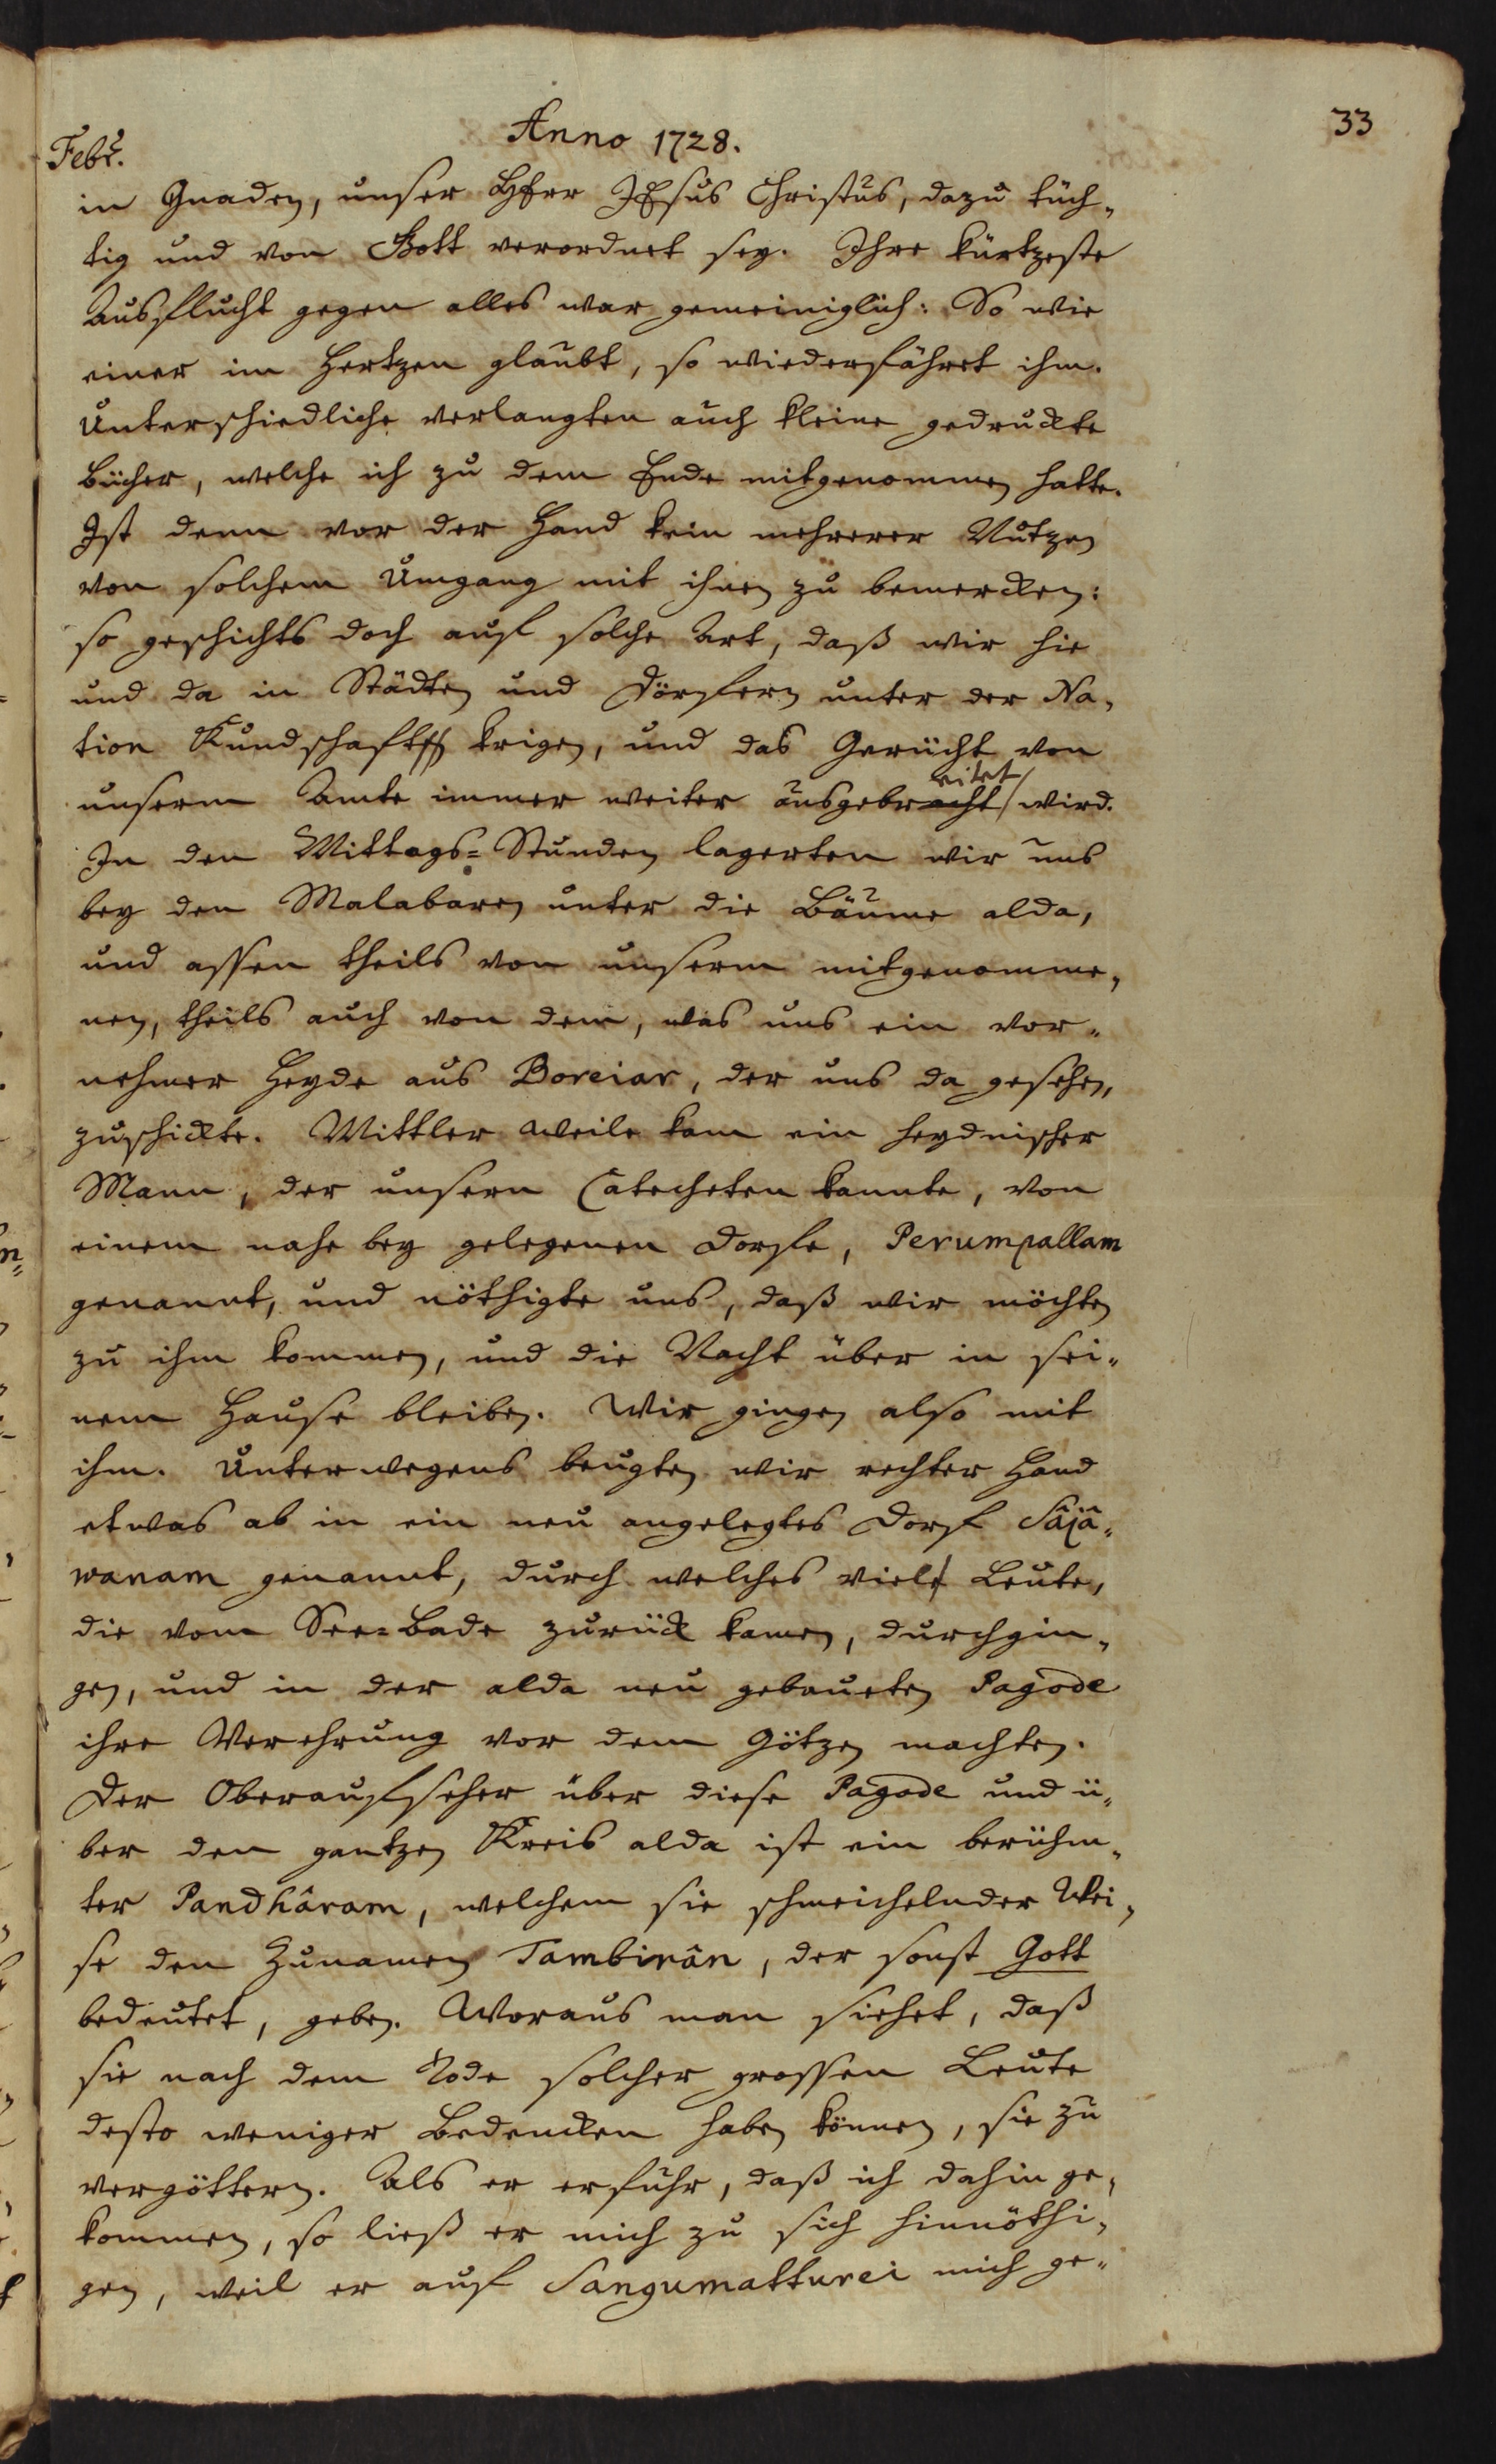 33
Anno 1728.
Febr.
in Gnaden, unser HErr JEsus Christus, dazu tüch-
tig und von Gott verordnet sey. Ihre kürtzeste
Ausflucht gegen alles war gemeiniglich: So wie
einer im Hertzen glaubt, so wiederfähret ihm.
Unterschiedliche verlangten auch kleine gedruckte
Bücher, welche ich zu dem Ende mitgenommen hatte.
Ist denn vor der Hand kein mehrerer Nutzen
von solchem Umgang mit ihnen zu bemercken:
so geschichts doch auf solche Art, daß wir hie
und da in Städten und Dörfern unter der Na-
tion Kundschaft krigen, und das Gerücht von
eitet
unserm Amte immer weiter ausgebracht wird.
In den Mittags=Stunden lagerten wir uns
bey den Malabaren unter die Bäume alda,
und assen theils von unserm mitgenomme-
nen, theils auch von dem, was uns ein vor-
nehmer Heyde aus Boreiar, der uns da gesehen,
zuschickte. Mittler weile kam ein heydnischer
Mann, der unsern Catecheten kannte, von
einem nahe bey gelegenen Dorfe, Perumpallam
genannt, und nöthigte uns, daß wir möchten
zu ihm kommen, und die Nacht über in sei-
nem Hause bleiben. Wir gingen also mit
ihm. Unterwegens beugten wir rechter Hand
etwas ab in ein neu angelegtes Dorf Sâjâ-
wanam genannt, durch welches viele Leute,
die vom See=Bade zurück kamen, durchgin-
gen, und in der alda neu gebaueten Pagode
ihre Verehrung vor dem Götzen machten.
Der Oberaufseher über diese Pagode und ü-
ber den gantzen Kreis alda ist ein berühm-
ter Pandhâram, welchem sie schmeichelnder Wei-
se den Zunamen Tambirân, der sonst Gott
bedeutet, geben. Woraus man siehet, daß
sie nach dem Tode solcher grossen Leute
desto weniger Bedencken haben können, sie zu
vergöttern. Als er erfuhr, daß ich dahin ge-
kommen, so ließ er mich zu sich hinnöthi-
gen, weil er auf Sangumatturei mich ge-